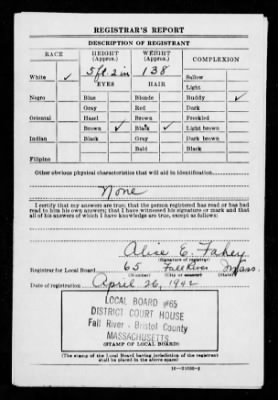 REGISTRAR'S REPORT
DESCRIPTION OF REGISTRANT
RACE HEIGHT (Approx.) WEIGHT (Approx.) COMPLEXION
5 ft. 2 in 138
White ✓ EYES HAIR Sallow
Light
Negro Blue Blonde Ruddy ✓
Gray Red Dark
Oriental Hazel Brown Freckled
Brown ✓ Black ✓ Light brown
Indian Black Gray Dark brown
Bald Black
Filipino
Other obvious physical characteristics that will aid in identification
None
I certify that my answers are true; that the person registered has read or has had
read to him his own answers; that I have witnessed his signature or mark and that
all of his answers of which I have knowledge are true, except as follows:
Alice E. Fahey
(Signature of registrar)
Registrar for Local Board 65 Fall River Mass.
(Number) (City or county) (State)
Date of registration April 26, 1942
LOCAL BOARD #65
DISTRICT COURT HOUSE
Fall River - Bristol County
MASSACHUSETTS
(STAMP OF LOCAL BOARD)
(The stamp of the Local Board having jurisdiction of the registrant
shall be placed in the above space)